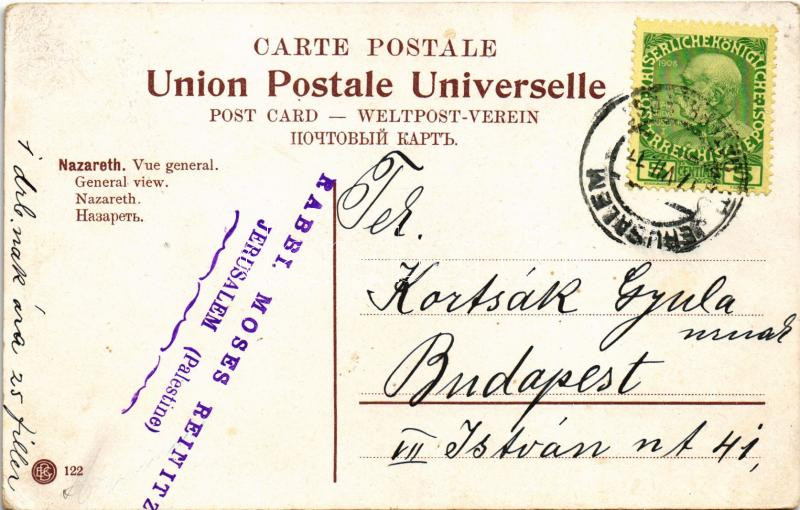 CARTE POSTALE
Union Postale Universelle
POST CARD — WELTPOST-VEREIN
ПОЧТОВЫЙ КАРТЪ.
Nazareth. Vue general.
General view.
Nazareth.
Назаретъ.
1908
5 5
JERUSALEM
RABBI. MOSES REINITZ
JERUSALEM
(Palestine)
1 drb.nak ára 25 fillér
Tek.
Kortsák Gyula
urnak
Budapest
VII István ut 41,
122